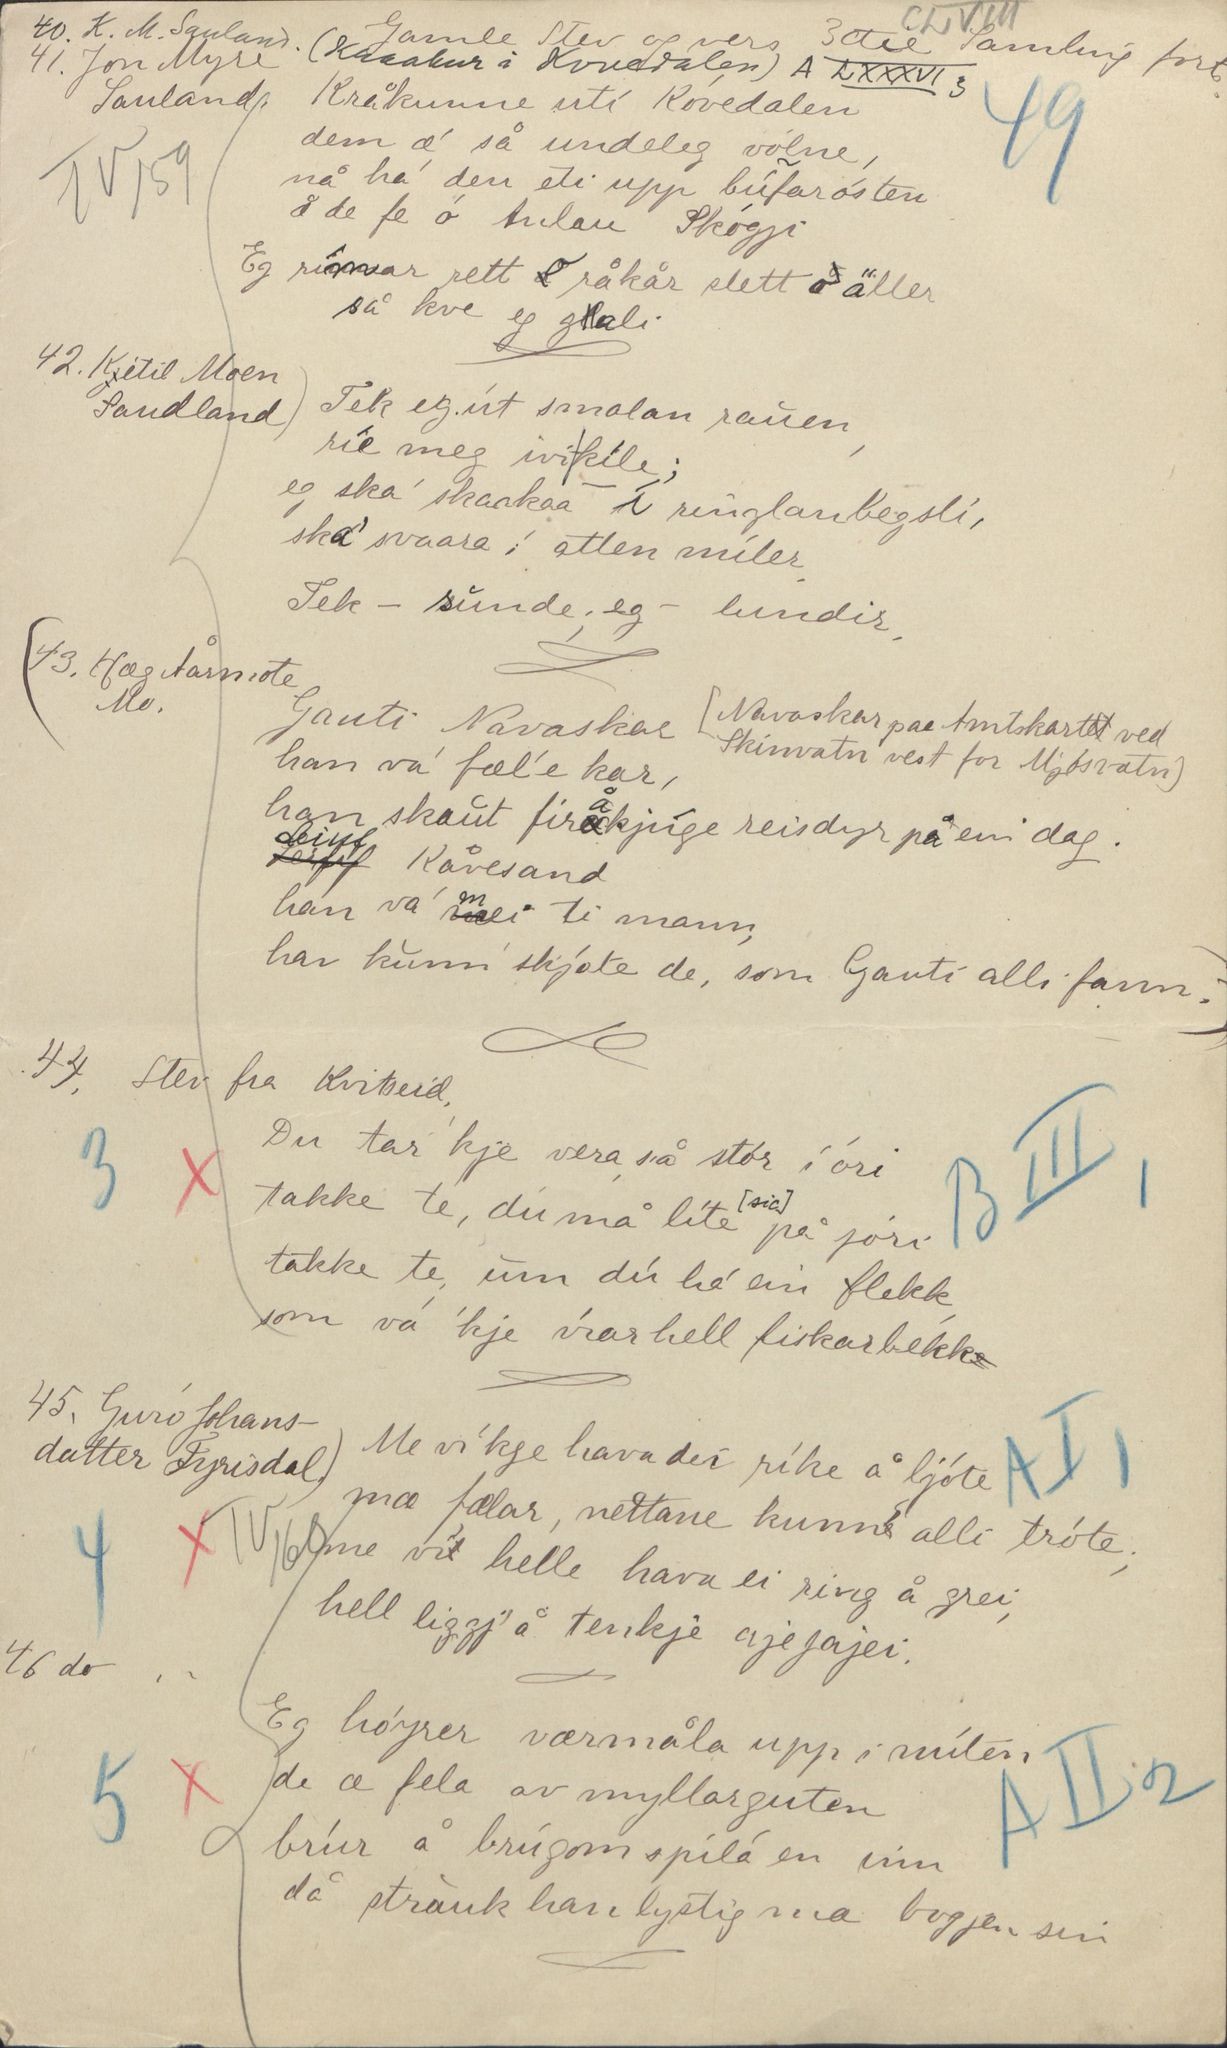 CLXVIII
40. K. M. Sauland. Gamle Stev og vers 3die Samling forts.
41. Jon Myre (Kraakur i Kovedalen) A LXXXVI 3
49
Sauland, Kråkunne uti Kóvedalen
dem æ' så undeleg vólne,
IV 159
nå há den eti upp búfarósten
å de fe ó Aulau Skógji
Eg rimar rett å råkår slett å äller
så kve eg gali
42. Kjetil Moen
Saudland) Tek eg út smalan rauen,
ríe meg ivi kíle;
eg ska' skaakaa í ringlanbegslí,
ska' svaara i atten míler
Tek – runde, eg – lundir.
(43. Hæg Aarmote
Mo.
Gauti Navaskar [Navaskar paa Amtskartet ved
Skinvatn vest for Mjósvatn)
han vá' fæl'e kar,
han skaut fira å kjúge reisdyr på ein dag.
Leiuf Kåvesand
han vá' mei ti mann,
han kunni skjóte de, som Gauti alli fann.)
44. Stev fra Kvitseid.
3 x Du tar 'kje vera så stór i óri B III 1
takke te, dú må líte [sic] på jóri
takke te, um dú há ein flekk
som vá 'kje viar hell fiskarbekk
45. Guró Johans-
datter Fyrisdal) Me ví kje hava dei ríke å ljóte A I 1
mæ fælar, nettane kunne alli tróte;
4 x IV 160 me ví helle hava ei ring å grei,
hell liggj' å tenkje aje jajei.
46 do „
Eg hóyrer værmåla upp i núten
5 x de æ fela av myllarguten A II 2
brúr å brúgom spilá en inn
då strauk han lystig mæ bogjen sin